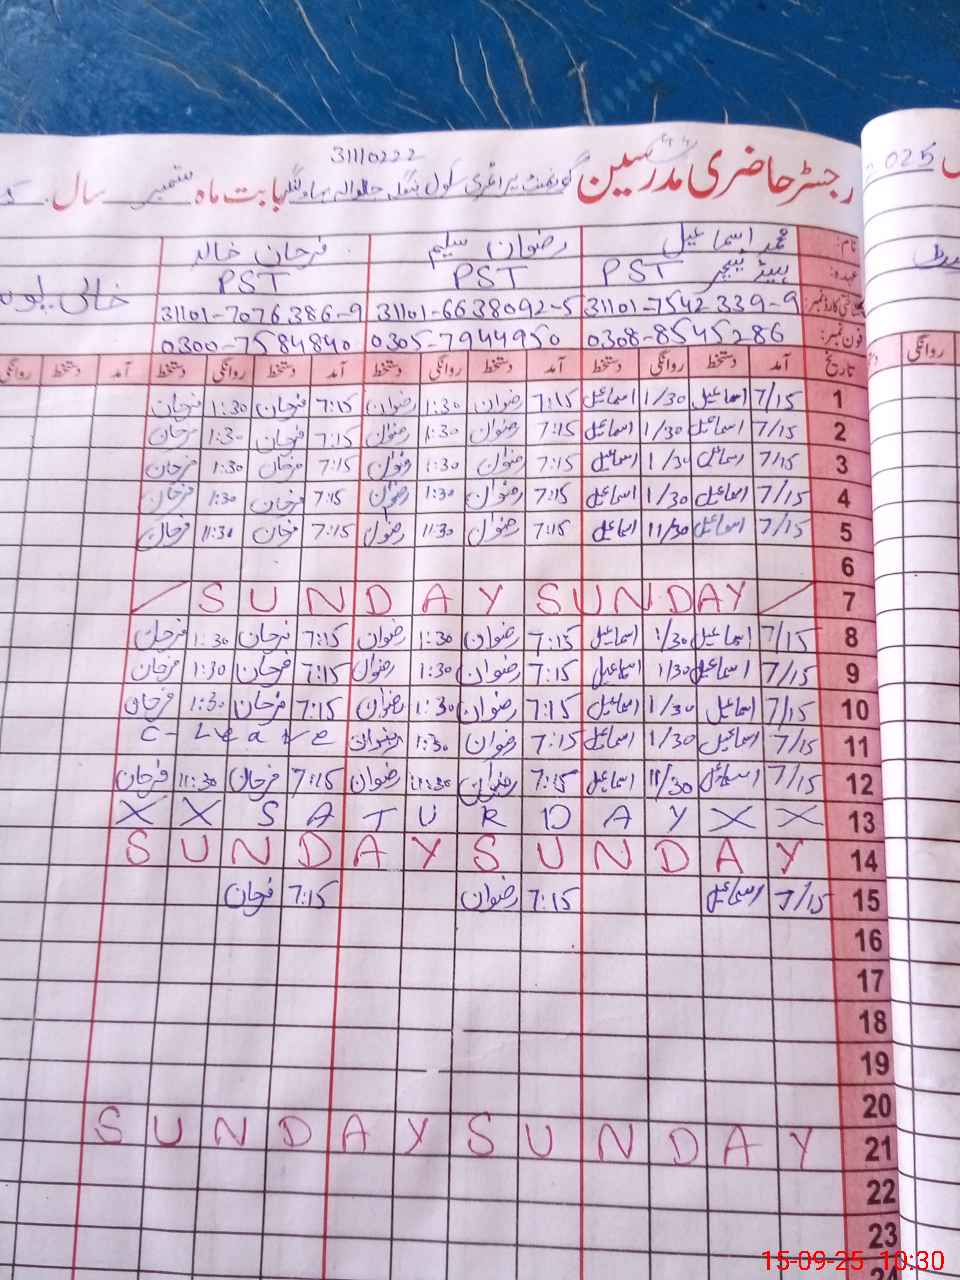 31110222
رجسٹر حاضری مدرسین گورنمنٹ پرائمری سکول جلوالہ بہاولنگر بابت ماہ ستمبر سال
025
نام: محمد اسماعیل رضوان سلیم فرحان خالد
عہدہ: ہیڈ ٹیچر PST PST PST خالی
شناختی کارڈ نمبر: 31101-7542339-9 31101-6638092-5 31101-7076386-9
فون نمبر: 0308-8545286 0305-7944950 0300-7584840
تاریخ آمد دستخط روانگی دستخط آمد دستخط روانگی دستخط آمد دستخط روانگی دستخط آمد دستخط روانگی
روانگی
1 7/15 اسماعیل 1/30 اسماعیل 7:15 رضوان 1:30 رضوان 7:15 فرحان 1:30 فرحان
2 7/15 اسماعیل 1/30 اسماعیل 7:15 رضوان 1:30 رضوان 7:15 فرحان 1:30 فرحان
3 7/15 اسماعیل 1/30 اسماعیل 7:15 رضوان 1:30 رضوان 7:15 فرحان 1:30 فرحان
4 7/15 اسماعیل 1/30 اسماعیل 7:15 رضوان 1:30 رضوان 7:15 فرحان 1:30 فرحان
5 7/15 اسماعیل 11/30 اسماعیل 7:15 رضوان 11:30 رضوان 7:15 فرحان 11:30 فرحان
6
SUNDAY SUNDAY 7
8 7/15 اسماعیل 1/30 اسماعیل 7:15 رضوان 1:30 رضوان 7:15 فرحان 1:30 فرحان
9 7/15 اسماعیل 1/30 اسماعیل 7:15 رضوان 1:30 رضوان 7:15 فرحان 1:30 فرحان
10 7/15 اسماعیل 1/30 اسماعیل 7:15 رضوان 1:30 رضوان 7:15 فرحان 1:30 فرحان
11 7/15 اسماعیل 1/30 اسماعیل 7:15 رضوان 1:30 رضوان C-Leave
12 7/15 اسماعیل 11/30 اسماعیل 7:15 رضوان 11:30 رضوان 7:15 فرحان 11:30 فرحان
X X SATURDAY X X 13
SUNDAY SUNDAY 14
15 7/15 اسماعیل 7:15 رضوان 7:15 فرحان
16
17
18
19
20
SUNDAY SUNDAY 21
22
23
24
15-09-25 10:30